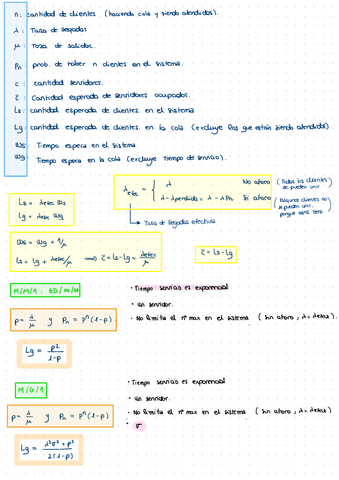 n: cantidad de clientes (haciendo cola y siendo atendidos).
λ: Tasa de llegadas
μ: Tasa de salidas.
Pn: prob. de haber n clientes en el sistema.
c: cantidad servidores.
c̄: Cantidad esperada de servidores ocupados.
Ls: cantidad esperada de clientes en el sistema
Lq: cantidad esperada de clientes en la cola (excluye los que están siendo atendidos)
Ws: Tiempo espera en el sistema
Wq: Tiempo espera en la cola (excluye tiempo de servicio).
λefec = { λ No aforo (Todos los clientes se pueden unir.
λ - λperdida = λ - λPn Si aforo (Algunos clientes no se pueden unir. porque está lleno
Ls = λefec Ws
Lq = λefec Wq
↳ Tasa de llegadas efectiva
Ws = Wq + 1/μ
Ls = Lq + λefec/μ ⟹ c̄ = Ls - Lq = λefec/μ
c̄ = Ls - Lq
M/M/1: GD/∞/∞
• Tiempo servicio es exponencial
• Un servidor.
• No limita el nº max en el sistema (sin aforo, λ = λefect)
ρ = λ/μ y Pn = ρⁿ(1-ρ)
Lq = ρ²/1-ρ
M/G/1
• Tiempo servicio es exponencial
• un servidor.
• No limita el nº max en el sistema (sin aforo, λ = λefect)
• σ
ρ = λ/μ y Pn = ρⁿ(1-ρ)
Lq = λ²σ² + ρ²/2(1-ρ)